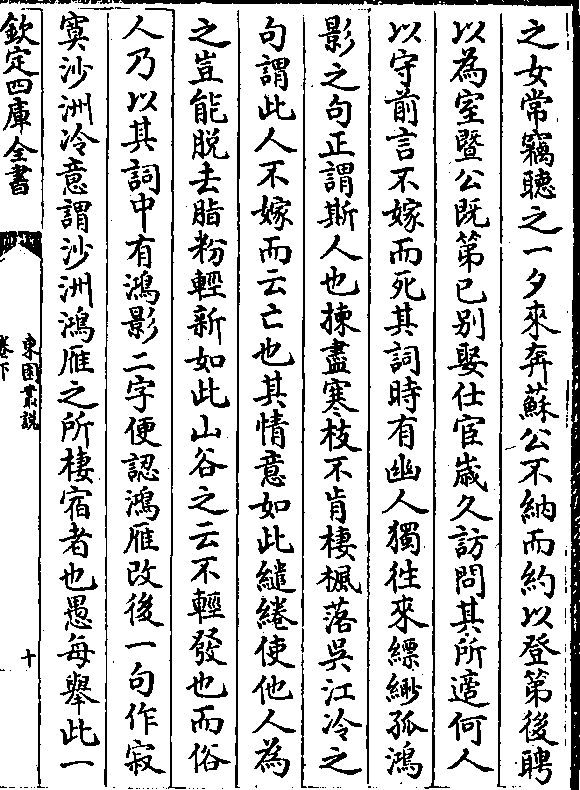 之女常竊聽之一夕來奔蘇公不納而約以登第後聘
以為室暨公既第已别娶仕宦嵗久訪問其所適何人
以守前言不嫁而死其詞時有幽人獨徃來縹緲孤鴻
影之句正謂斯人也揀盡寒枝不肯棲楓落吳江冷之
句謂此人不嫁而云亡也其情意如此繾綣使他人為
之豈能脱去脂粉輕新如此山谷之云不輕發也而俗
人乃以其詞中有鴻影二字便認鴻雁改後一句作寂
寞沙洲冷意謂沙洲鴻雁之所棲宿者也愚每舉此一
欽定四庫全書
東園叢説
卷下
十